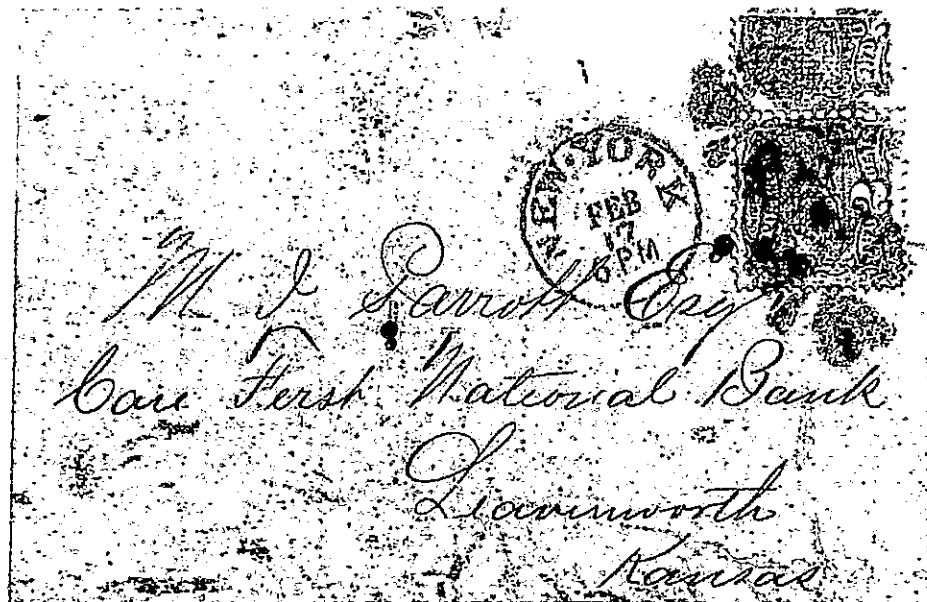 NEW-YORK
FEB
17
6 PM
M J Parrott Esqr
Care First National Bank
Leavenworth
Kansas